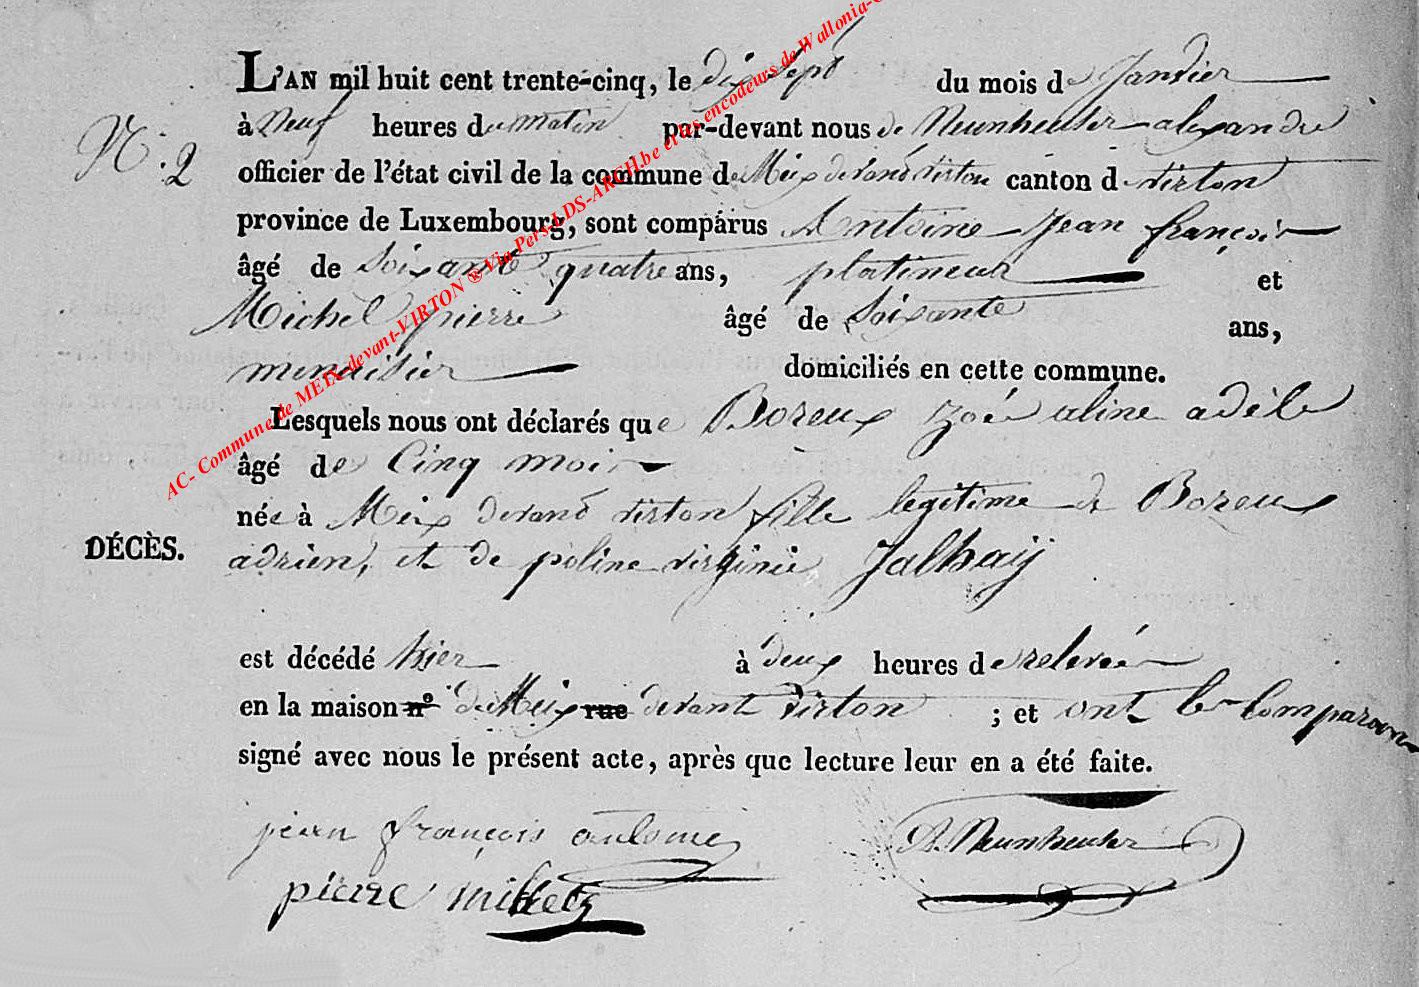 L'AN mil huit cent trente-cinq, le dix sept du mois de Janvier
à Neuf heures du matin par-devant nous de Neunheuser alexandre
N.º 2
officier de l'état civil de la commune de Meix devand virton canton d virton
province de Luxembourg, sont comparus Antoine Jean françois
âgé de Soixante quatre ans, platineur et
Michel pierre âgé de Soixante ans,
menuisier domiciliés en cette commune.
Lesquels nous ont déclarés que Boreux zoée aline adèle
âgé de Cinq mois
née à Meix devand virton fille legitime de Boreux
DÉCÈS.
adrien, et de poline virginie Jalhaij
est décédé hier à deux heures de relevée
en la maison nº de Meix rue devant virton ; et ont les Comparans
signé avec nous le présent acte, après que lecture leur en a été faite.
jean françois antoine A. Neunheuser
pierre michel
AC- Commune de MEIX-devant-VIRTON ® Via Pers-LDS-ARCH.be et les encodeurs de Wallonia-